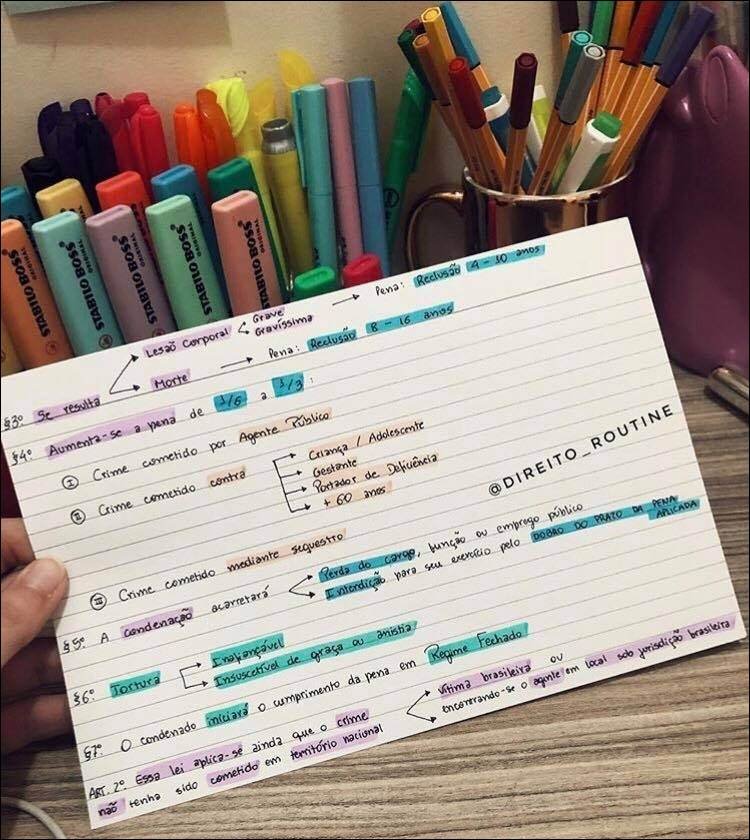 STABILO BOSS ORIGINAL
STABILO BOSS ORIGINAL
STABILO BOSS ORIGINAL
STABILO BOSS ORIGINAL
STABILO BOSS ORIGINAL
§3º Se resulta
Lesão Corporal
Grave
Gravíssima
Pena: Reclusão 4 - 10 anos
Morte
Pena: Reclusão 8 - 16 anos
§4º Aumenta-se a pena de 1/6 a 1/3:
I Crime cometido por Agente Público
II Crime cometido contra
Criança / Adolescente
Gestante
Portador de Deficiência
+ 60 anos
III Crime cometido mediante sequestro
@DIREITO_ROUTINE
§5º A condenação acarretará
Perda do cargo, função ou emprego público
Interdição para seu exercício pelo DOBRO DO PRAZO DA PENA APLICADA
§6º Tortura
Inafiançável
Insuscetível de graça ou anistia
§7º O condenado iniciará o cumprimento da pena em Regime Fechado
ART. 2º Essa lei aplica-se ainda que o crime
não tenha sido cometido em território nacional
vítima brasileira ou
encontrando-se o agente em local sob jurisdição brasileira